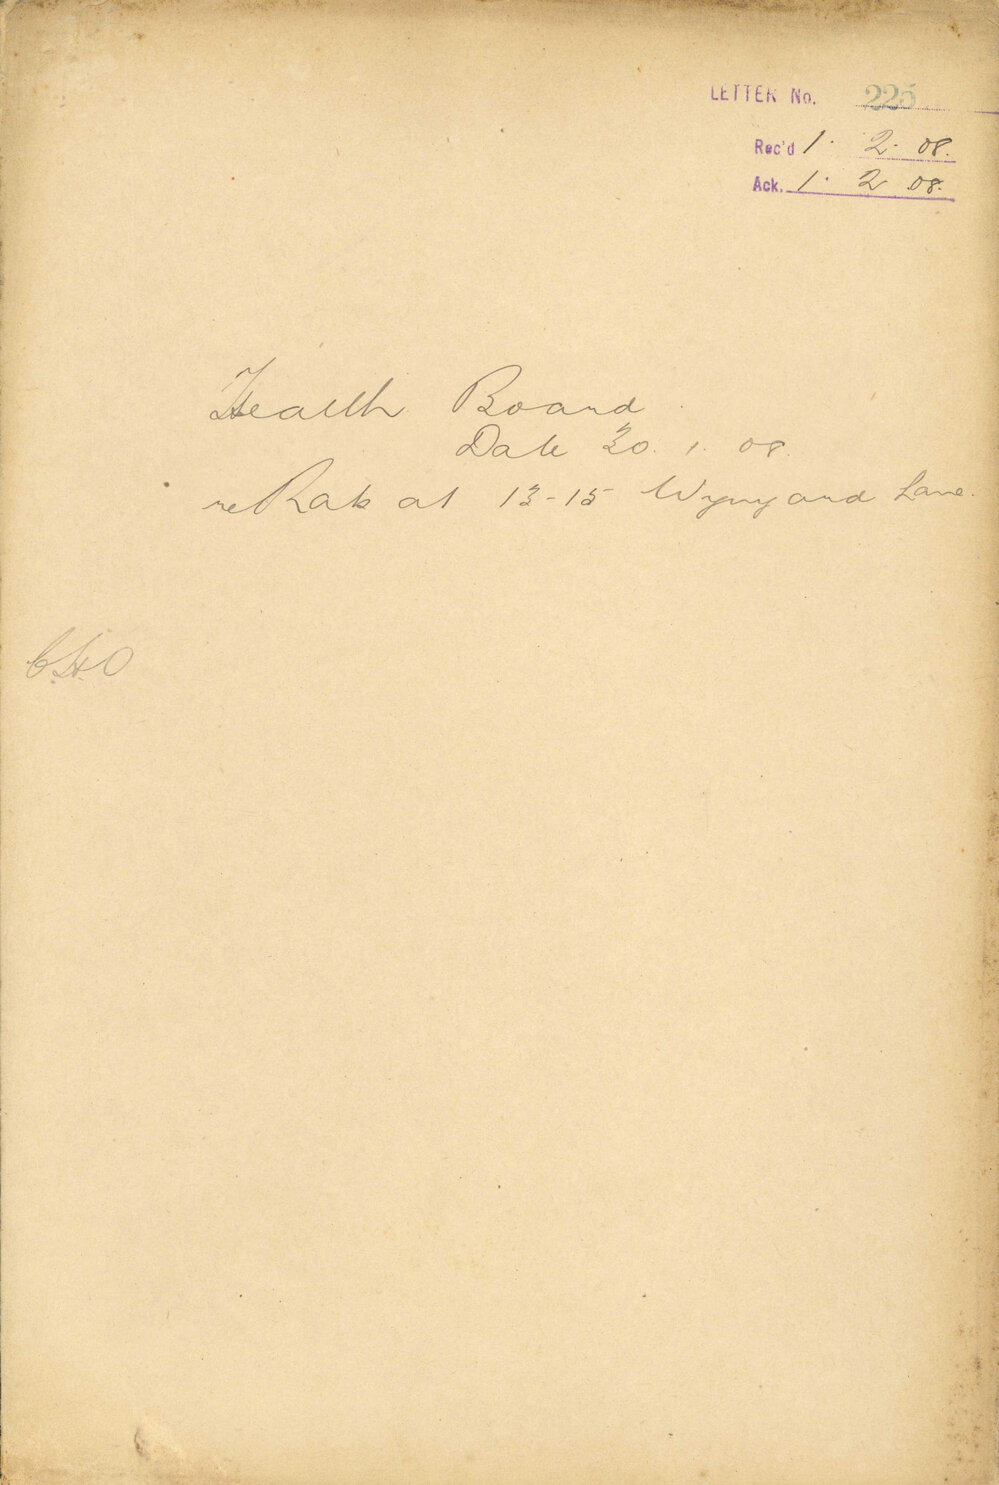 LETTER No. 225
Rec'd 1. 2. 08.
Ack. 1. 2 08.
Health Board
Date 30. 1. 08.
re Rats at 13-15 Wynyard Lane.
C.H.O